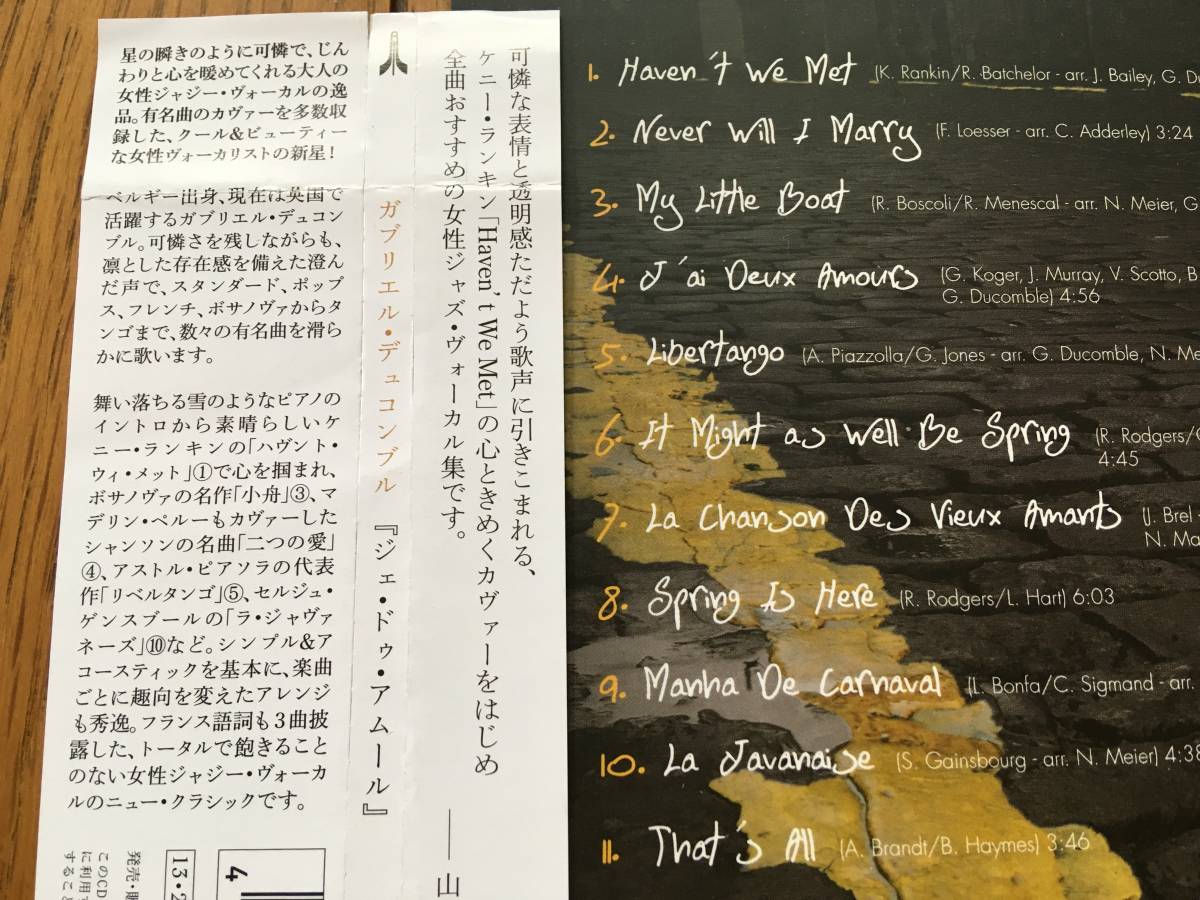 星の瞬きのように可憐で、じん
わりと心を暖めてくれる大人の
女性ジャジー・ヴォーカルの逸
品。有名曲のカヴァーを多数収
録した、クール&ビューティー
な女性ヴォーカリストの新星!
ベルギー出身、現在は英国で
活躍するガブリエル・デュコン
ブル。可憐さを残しながらも、
凛とした存在感を備えた澄ん
だ声で、スタンダード、ポップ
ス、フレンチ、ボサノヴァからタ
ンゴまで、数々の有名曲を滑ら
かに歌います。
舞い落ちる雪のようなピアノの
イントロから素晴らしいケ
ニー・ランキンの「ハヴント・
ウィ・メット」①で心を掴まれ、
ボサノヴァの名作「小舟」③、マ
デリン・ペルーもカヴァーした
シャンソンの名曲「二つの愛」
④、アストル・ピアソラの代表
作「リベルタンゴ」⑤、セルジュ・
ゲンスブールの「ラ・ジャヴァ
ネーズ」⑩など。シンプル&ア
コースティックを基本に、楽曲
ごとに趣向を変えたアレンジ
も秀逸。フランス語詞も3曲披
露した、トータルで飽きること
のない女性ジャジー・ヴォーカ
ルのニュー・クラシックです。
ガブリエル・デュコンブル『ジェ・ドゥ・アムール』
可憐な表情と透明感ただよう歌声に引きこまれる、
ケニー・ランキン「Haven't We Met」の心ときめくカヴァーをはじめ
全曲おすすめの女性ジャズ・ヴォーカル集です。
——山
発売・販
このCD
に利用
すること
13・2
4
1. Haven't We Met (K. Rankin/R. Batchelor - arr. J. Bailey, G. Du
2. Never Will I Marry (F. Loesser - arr. C. Adderley) 3:24
3. My Little Boat (R. Boscoli/R. Menescal - arr. N. Meier, G
4. J'ai Deux Amours (G. Koger, J. Murray, V. Scotto, B
G. Ducomble) 4:56
5. Libertango (A. Piazzolla/G. Jones - arr. G. Ducomble, N. Me
6. It Might as Well Be Spring (R. Rodgers/
4:45
7. La Chanson Des Vieux Amants (J. Brel -
N. Ma
8. Spring Is Here (R. Rodgers/L. Hart) 6:03
9. Manha De Carnaval (L. Bonfa/C. Sigmand - arr.
10. La Javanaise (S. Gainsbourg - arr. N. Meier) 4:38
11. That's All (A. Brandt/B. Haymes) 3:46